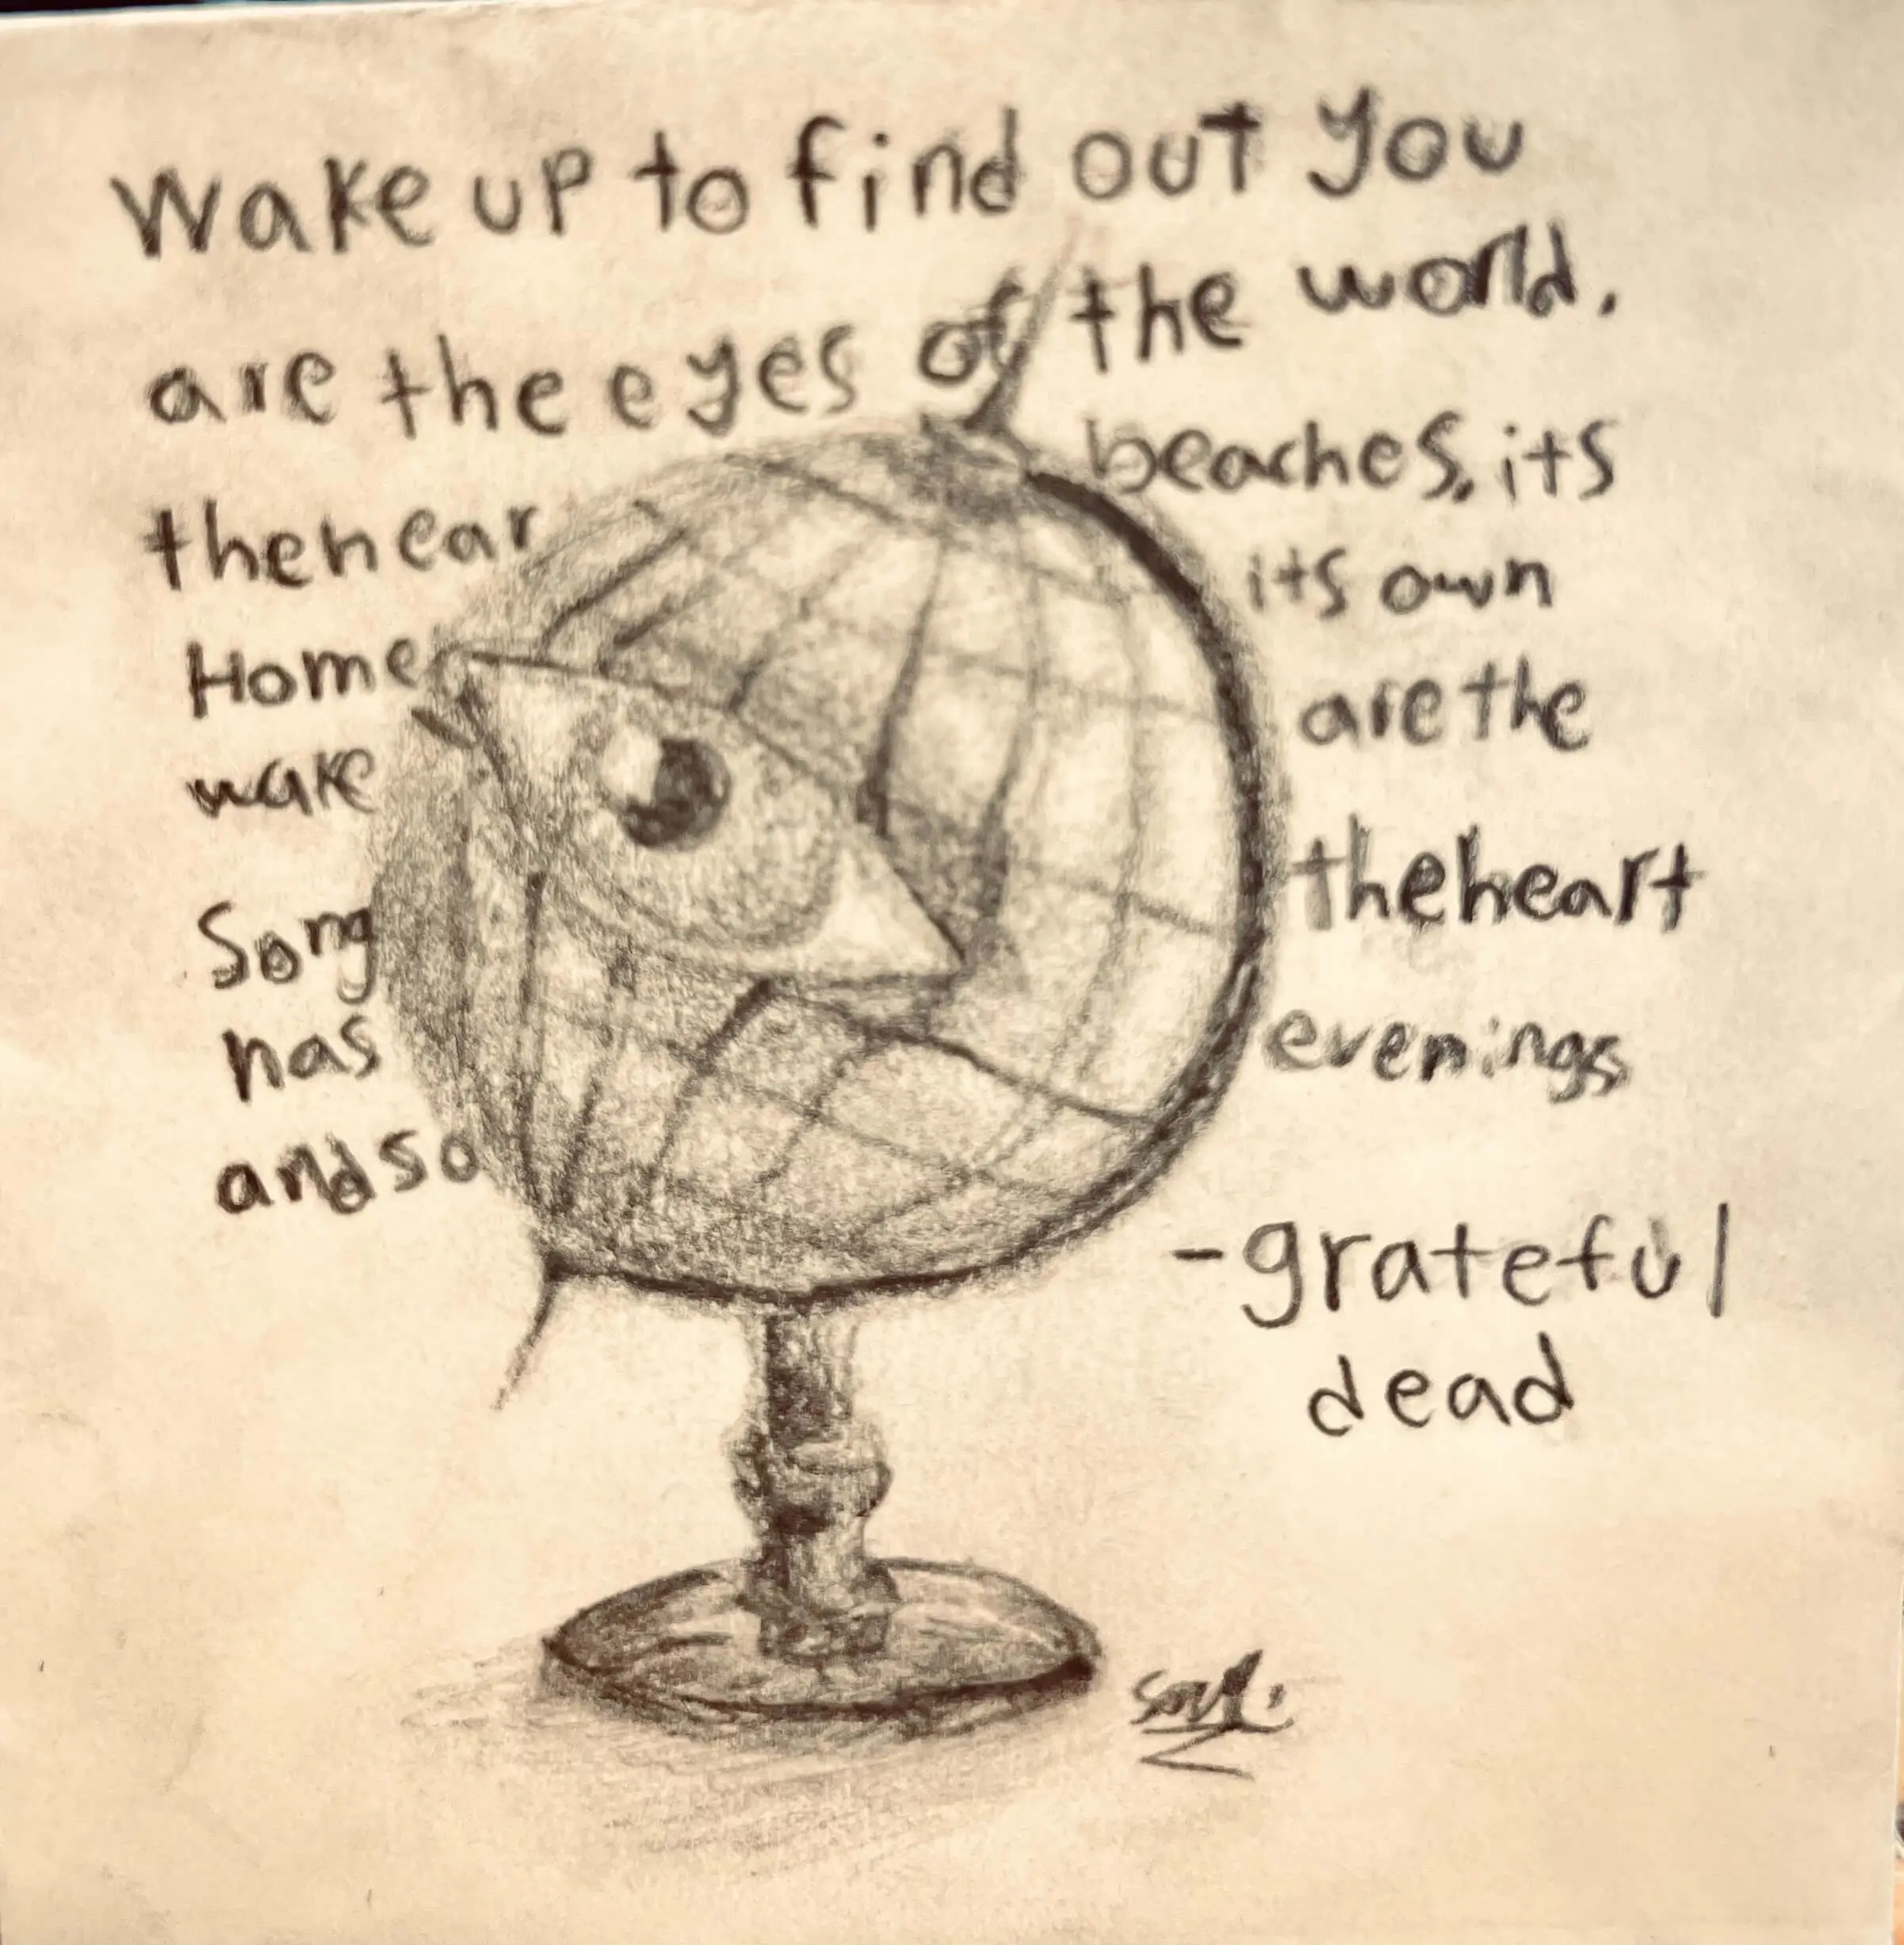 Wake up to find out you
are the eyes of the world.
the hear beaches, its
Home its own
wake are the
Song the heart
has evenings
and so
-grateful
dead